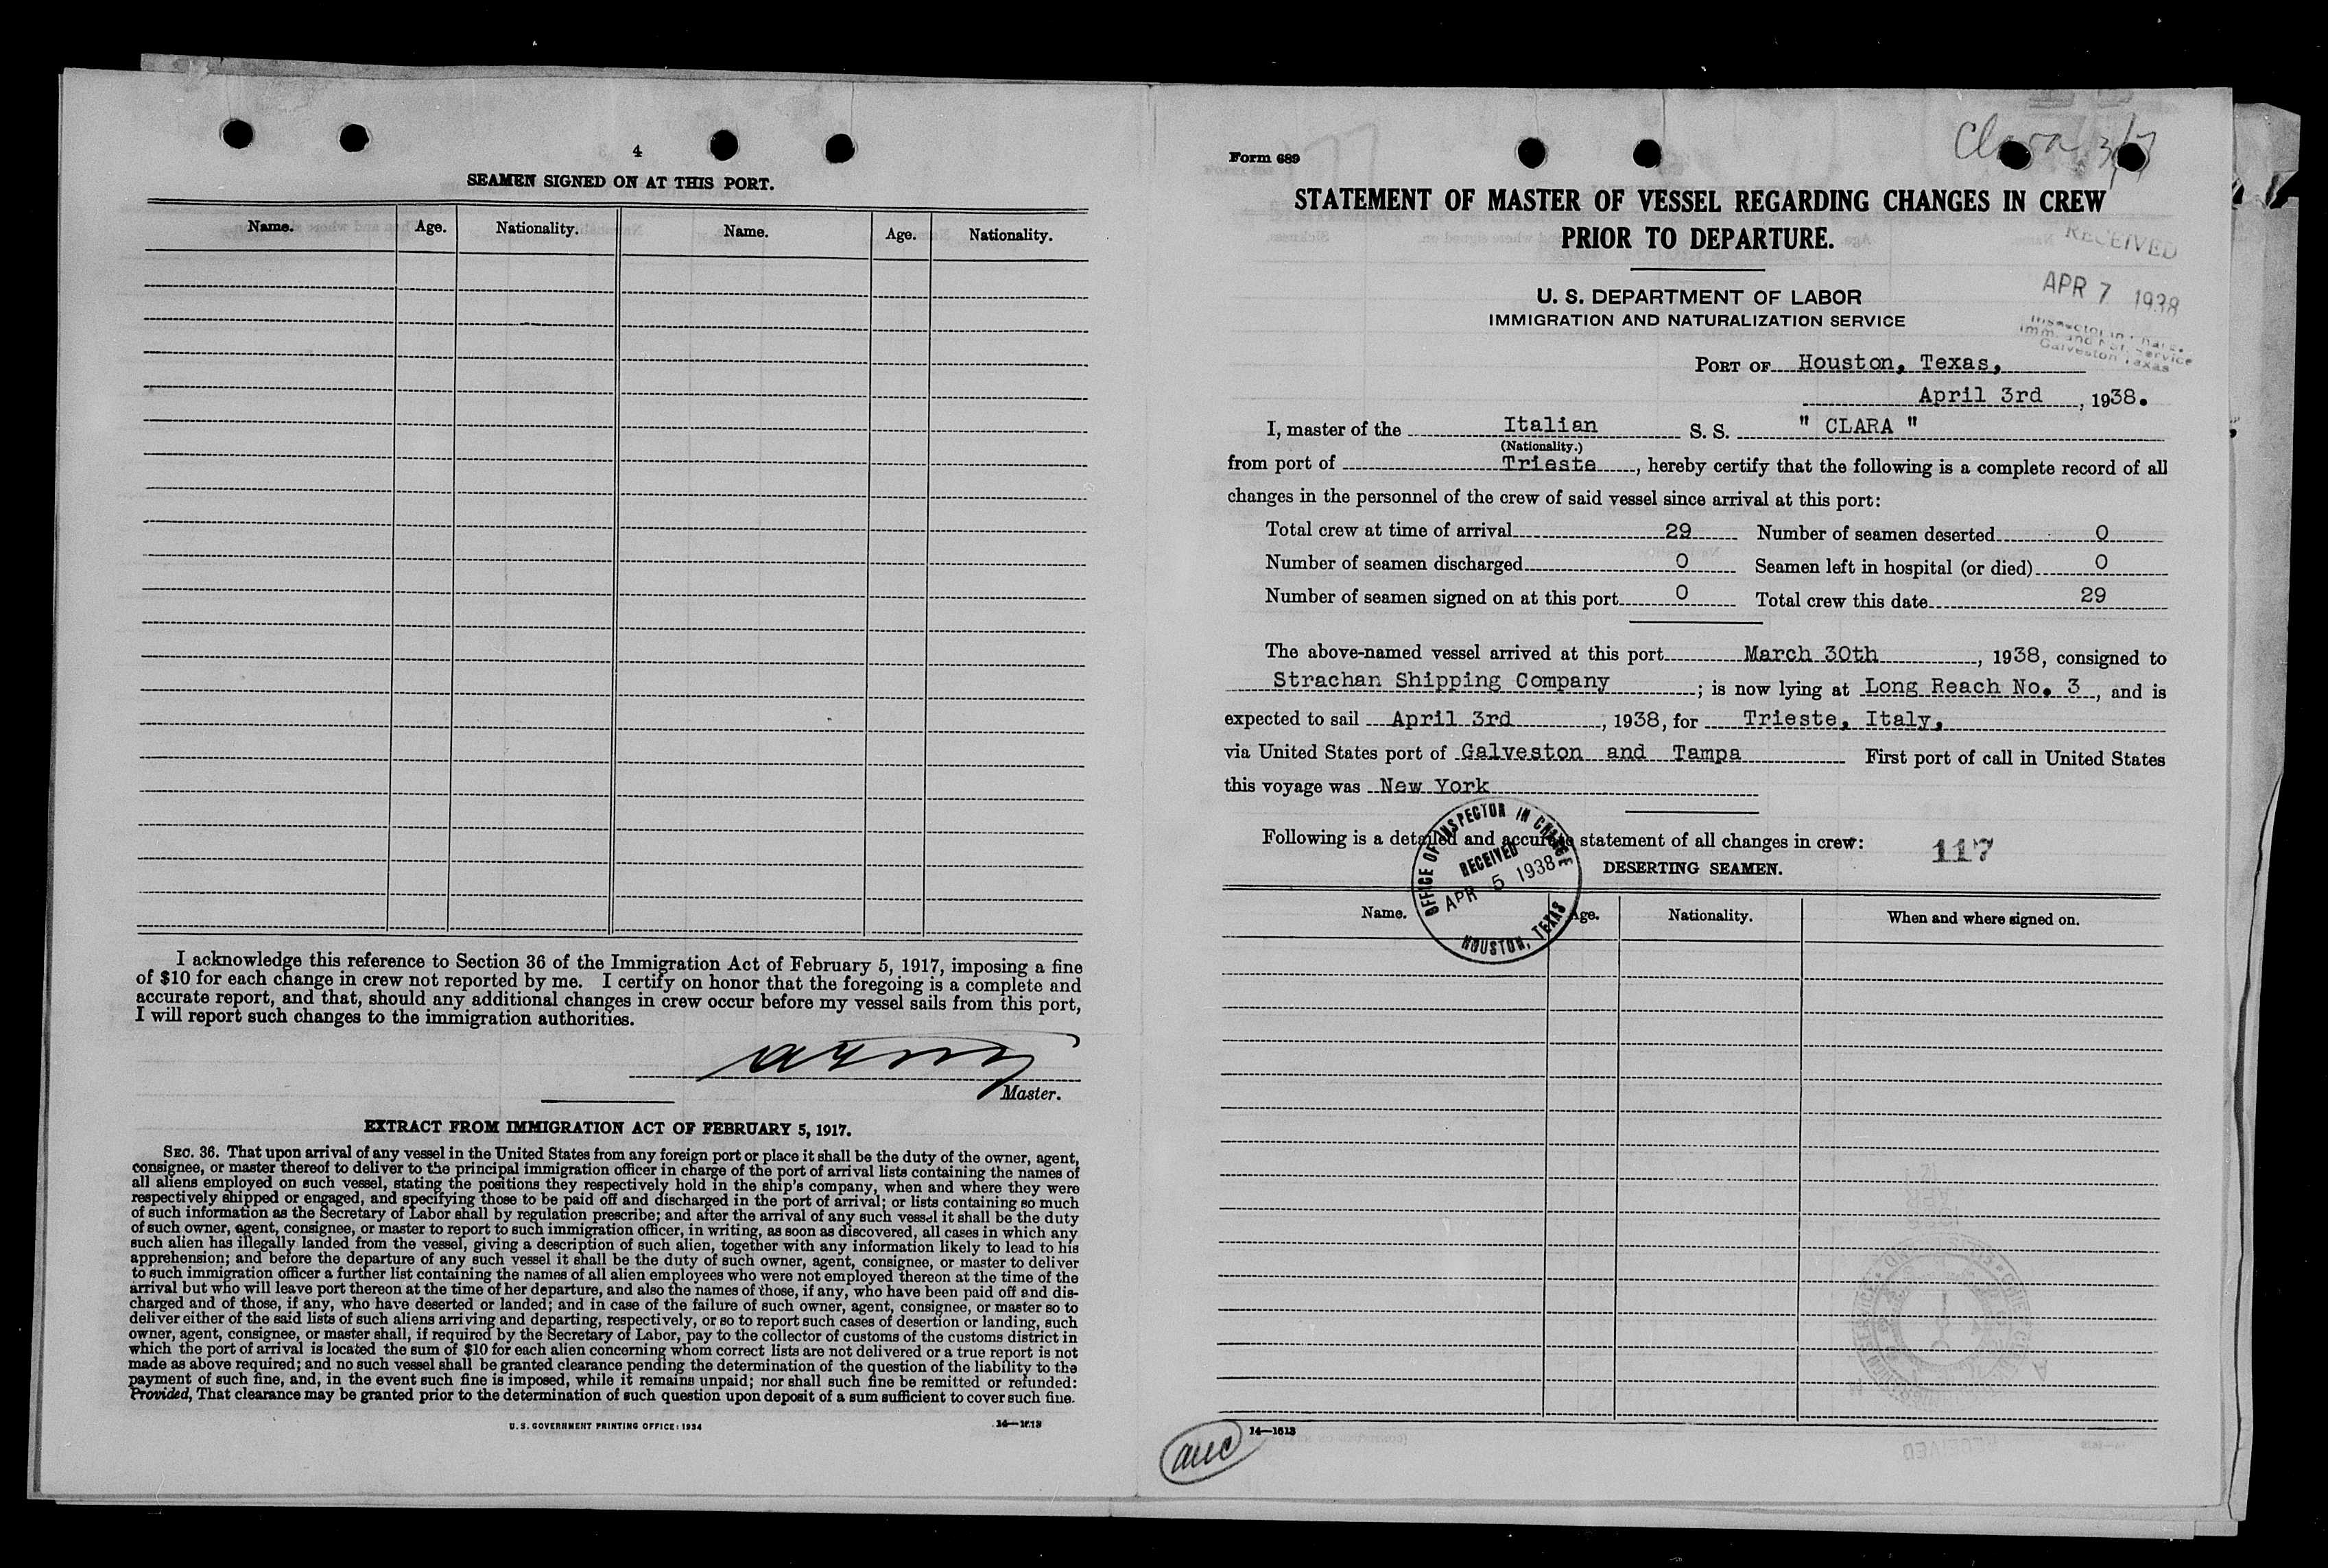 4
SEAMEN SIGNED ON AT THIS PORT.
Name. Age. Nationality. Name. Age. Nationality.
I acknowledge this reference to Section 36 of the Immigration Act of February 5, 1917, imposing a fine
of $10 for each change in crew not reported by me. I certify on honor that the foregoing is a complete and
accurate report, and that, should any additional changes in crew occur before my vessel sails from this port,
I will report such changes to the immigration authorities.
Master.
EXTRACT FROM IMMIGRATION ACT OF FEBRUARY 5, 1917.
SEC. 36. That upon arrival of any vessel in the United States from any foreign port or place it shall be the duty of the owner, agent,
consignee, or master thereof to deliver to the principal immigration officer in charge of the port of arrival lists containing the names of
all aliens employed on such vessel, stating the positions they respectively hold in the ship's company, when and where they were
respectively shipped or engaged, and specifying those to be paid off and discharged in the port of arrival; or lists containing so much
of such information as the Secretary of Labor shall by regulation prescribe; and after the arrival of any such vessel it shall be the duty
of such owner, agent, consignee, or master to report to such immigration officer, in writing, as soon as discovered, all cases in which any
such alien has illegally landed from the vessel, giving a description of such alien, together with any information likely to lead to his
apprehension; and before the departure of any such vessel it shall be the duty of such owner, agent, consignee, or master to deliver
to such immigration officer a further list containing the names of all alien employees who were not employed thereon at the time of the
arrival but who will leave port thereon at the time of her departure, and also the names of those, if any, who have been paid off and dis-
charged and of those, if any, who have deserted or landed; and in case of the failure of such owner, agent, consignee, or master so to
deliver either of the said lists of such aliens arriving and departing, respectively, or so to report such cases of desertion or landing, such
owner, agent, consignee, or master shall, if required by the Secretary of Labor, pay to the collector of customs of the customs district in
which the port of arrival is located the sum of $10 for each alien concerning whom correct lists are not delivered or a true report is not
made as above required; and no such vessel shall be granted clearance pending the determination of the question of the liability to the
payment of such fine, and, in the event such fine is imposed, while it remains unpaid; nor shall such fine be remitted or refunded:
Provided, That clearance may be granted prior to the determination of such question upon deposit of a sum sufficient to cover such fine.
U. S. GOVERNMENT PRINTING OFFICE: 1934 14—1613
Clara 3/7
Form 689
STATEMENT OF MASTER OF VESSEL REGARDING CHANGES IN CREW
PRIOR TO DEPARTURE.
RECEIVED
APR 7 1938
Inspector in Charge.
Imm. and Nat. Service
Galveston Texas
U. S. DEPARTMENT OF LABOR
IMMIGRATION AND NATURALIZATION SERVICE
PORT OF Houston, Texas,
April 3rd, 1938.
I, master of the Italian S. S. " CLARA "
(Nationality.)
from port of Trieste, hereby certify that the following is a complete record of all
changes in the personnel of the crew of said vessel since arrival at this port:
Total crew at time of arrival 29 Number of seamen deserted 0
Number of seamen discharged 0 Seamen left in hospital (or died) 0
Number of seamen signed on at this port 0 Total crew this date 29
The above-named vessel arrived at this port March 30th, 1938, consigned to
Strachan Shipping Company; is now lying at Long Reach No. 3, and is
expected to sail April 3rd, 1938, for Trieste, Italy,
via United States port of Galveston and Tampa First port of call in United States
this voyage was New York
Following is a detailed and accurate statement of all changes in crew: 117
OFFICE OF INSPECTOR IN CHARGE
RECEIVED
APR 5 1938
HOUSTON, TEXAS
DESERTING SEAMEN.
Name. Age. Nationality. When and where signed on.
14—1613